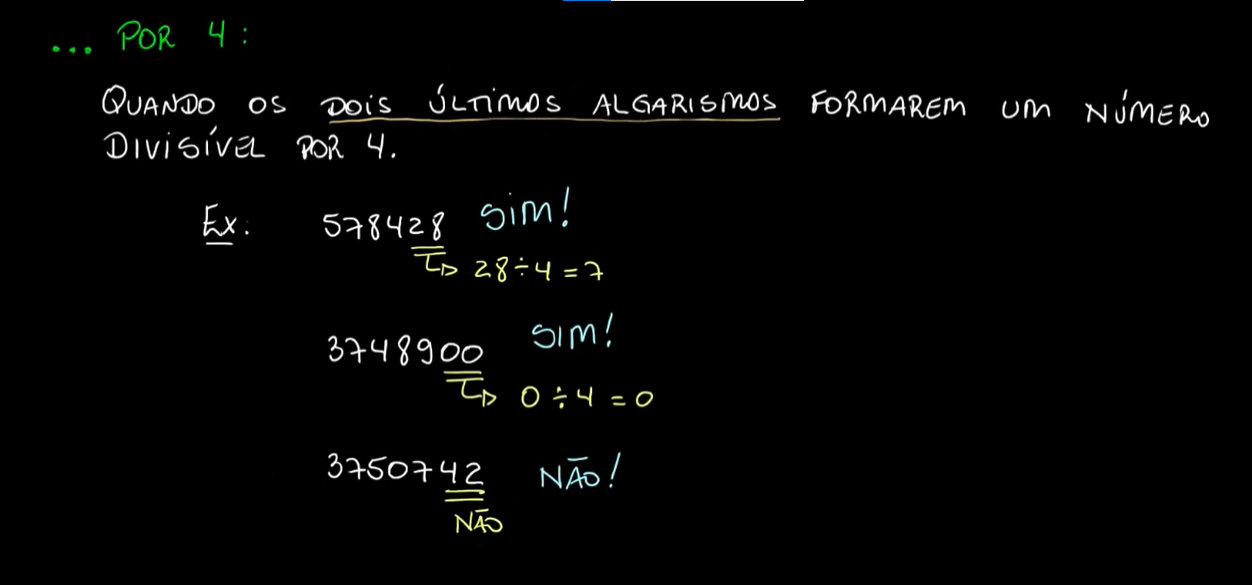 ... POR 4:
QUANDO OS DOIS ÚLTIMOS ALGARISMOS FORMAREM UM NÚMERO
DIVISÍVEL POR 4.
Ex: 578428 SIM!
28÷4=7
3748900 SIM!
0÷4=0
3750742 NÃO!
NÃO